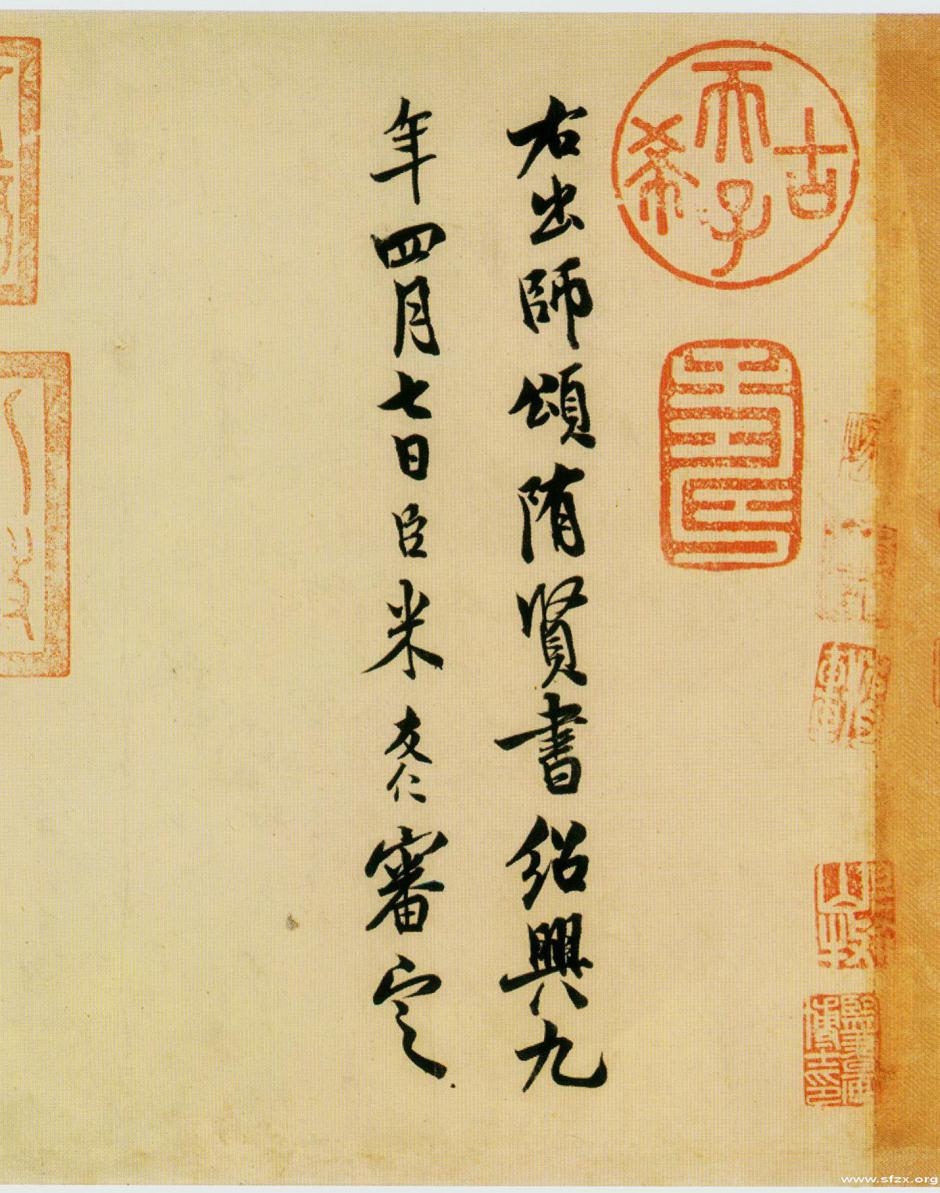 右出師頌隋賢書紹興九
年四月七日臣米友仁審定
古
希
天子
壽
www.sfzx.org